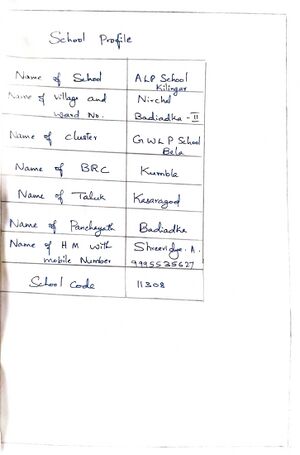 School Profile
Name of School ALP School
Kilingar
Name of Village and Nirchal
Ward No. Badiadka - II
Name of cluster GWLP School
Bela
Name of BRC Kumble
Name of Taluk Kasaragod
Name of Panchayath Badiadka
Name of HM with Shreevidya. A.
mobile Number 9995535627
School Code 11308